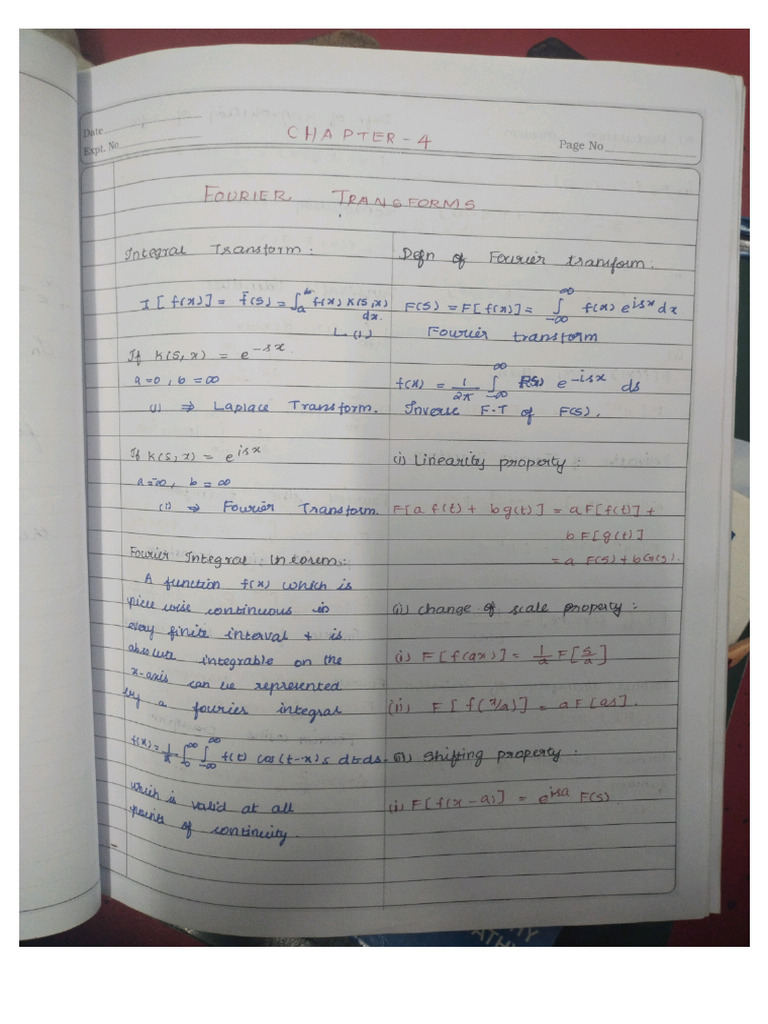 Date
Expt. No
CHAPTER - 4
Page No
FOURIER TRANSFORMS
Integral Transform :
I [ f(x) ] = f̄(s) = ∫ₐᵇ f(x) K(s,x) dx.
L (1)
If K(s, x) = e^-sx
a = 0, b = ∞
(1) ⇒ Laplace Transform.
If K(s, x) = e^isx
a = -∞, b = ∞
(1) ⇒ Fourier Transform.
Fourier Integral
A function f(x) which is
piece wise continuous in
every finite interval & is
absolute integrable on the
x-axis can be represented
by a fourier integral
f(x) = 1/π ∫₀^∞ ∫₋∞^∞ f(t) cos (t-x) s dt ds
which is valid at all
points of continuity.
Defn of Fourier transform :
F(s) = F[ f(x) ] = ∫₋∞^∞ f(x) e^isx dx
Fourier transform
f(x) = 1/2π ∫₋∞^∞ F(s) e^-isx ds
Inverse F.T of F(s).
(i) Linearity property :
F[ a f(t) + b g(t) ] = a F[ f(t) ] +
b F[ g(t) ]
= a F(s) + b G(s).
(ii) change of scale property :
(i) F [ f(ax) ] = 1/a F[ s/a ]
(ii) F [ f(x/a) ] = a F [as].
(iii) Shifting property :
(i) F [ f(x - a) ] = e^isa F(s)